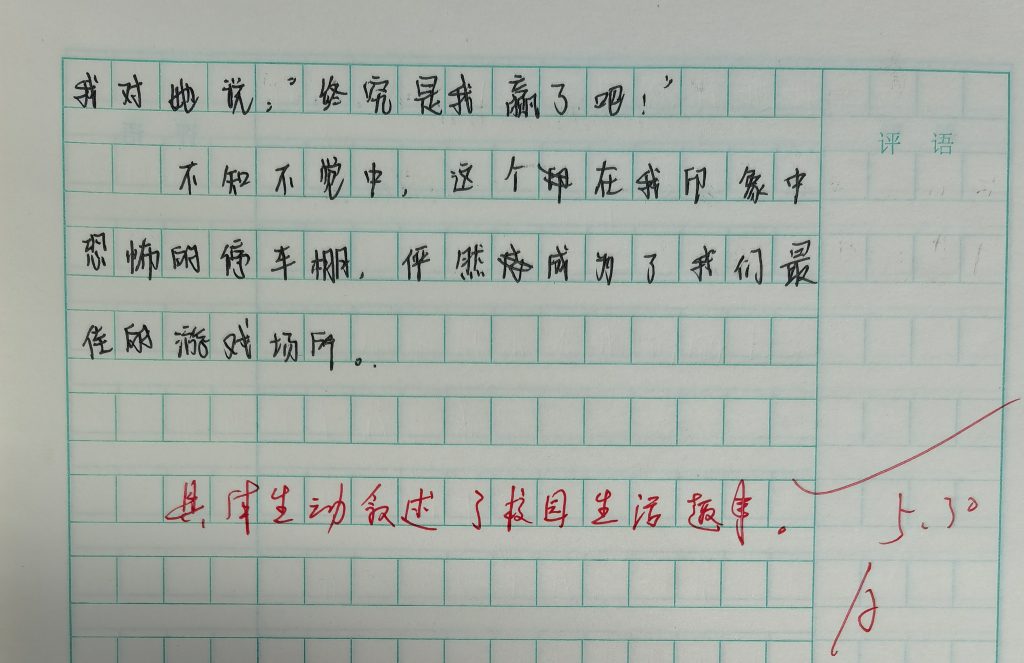 我对她说："终究是我赢了吧！"
不知不觉中，这个在我印象中
恐怖的停车棚，怦然成为了我们最
佳的游戏场所。
评语
具体生动叙述了校园生活趣事。
5.30
A